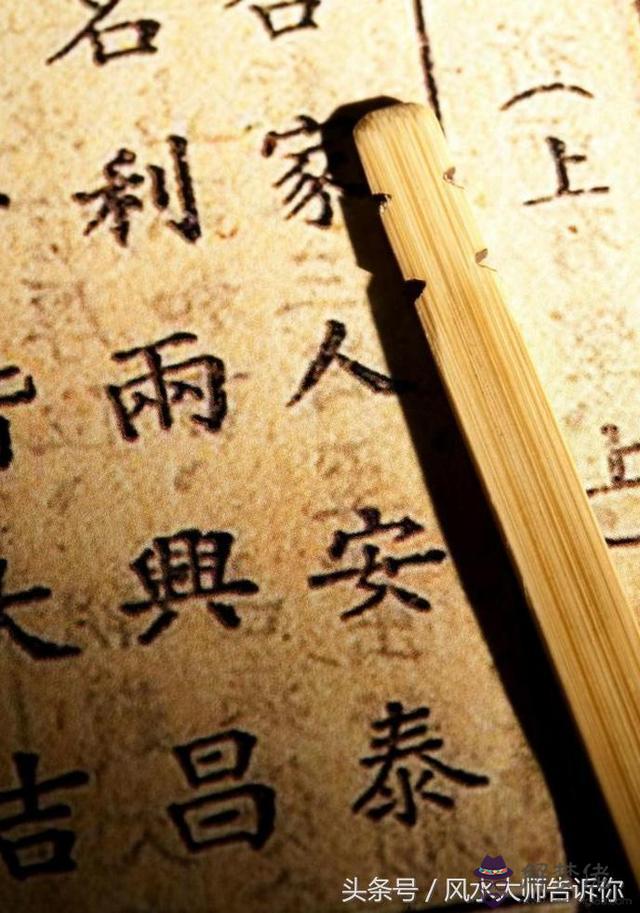 （上
家人安泰
名利兩興昌
大吉
头条号 / 风水大师告诉你